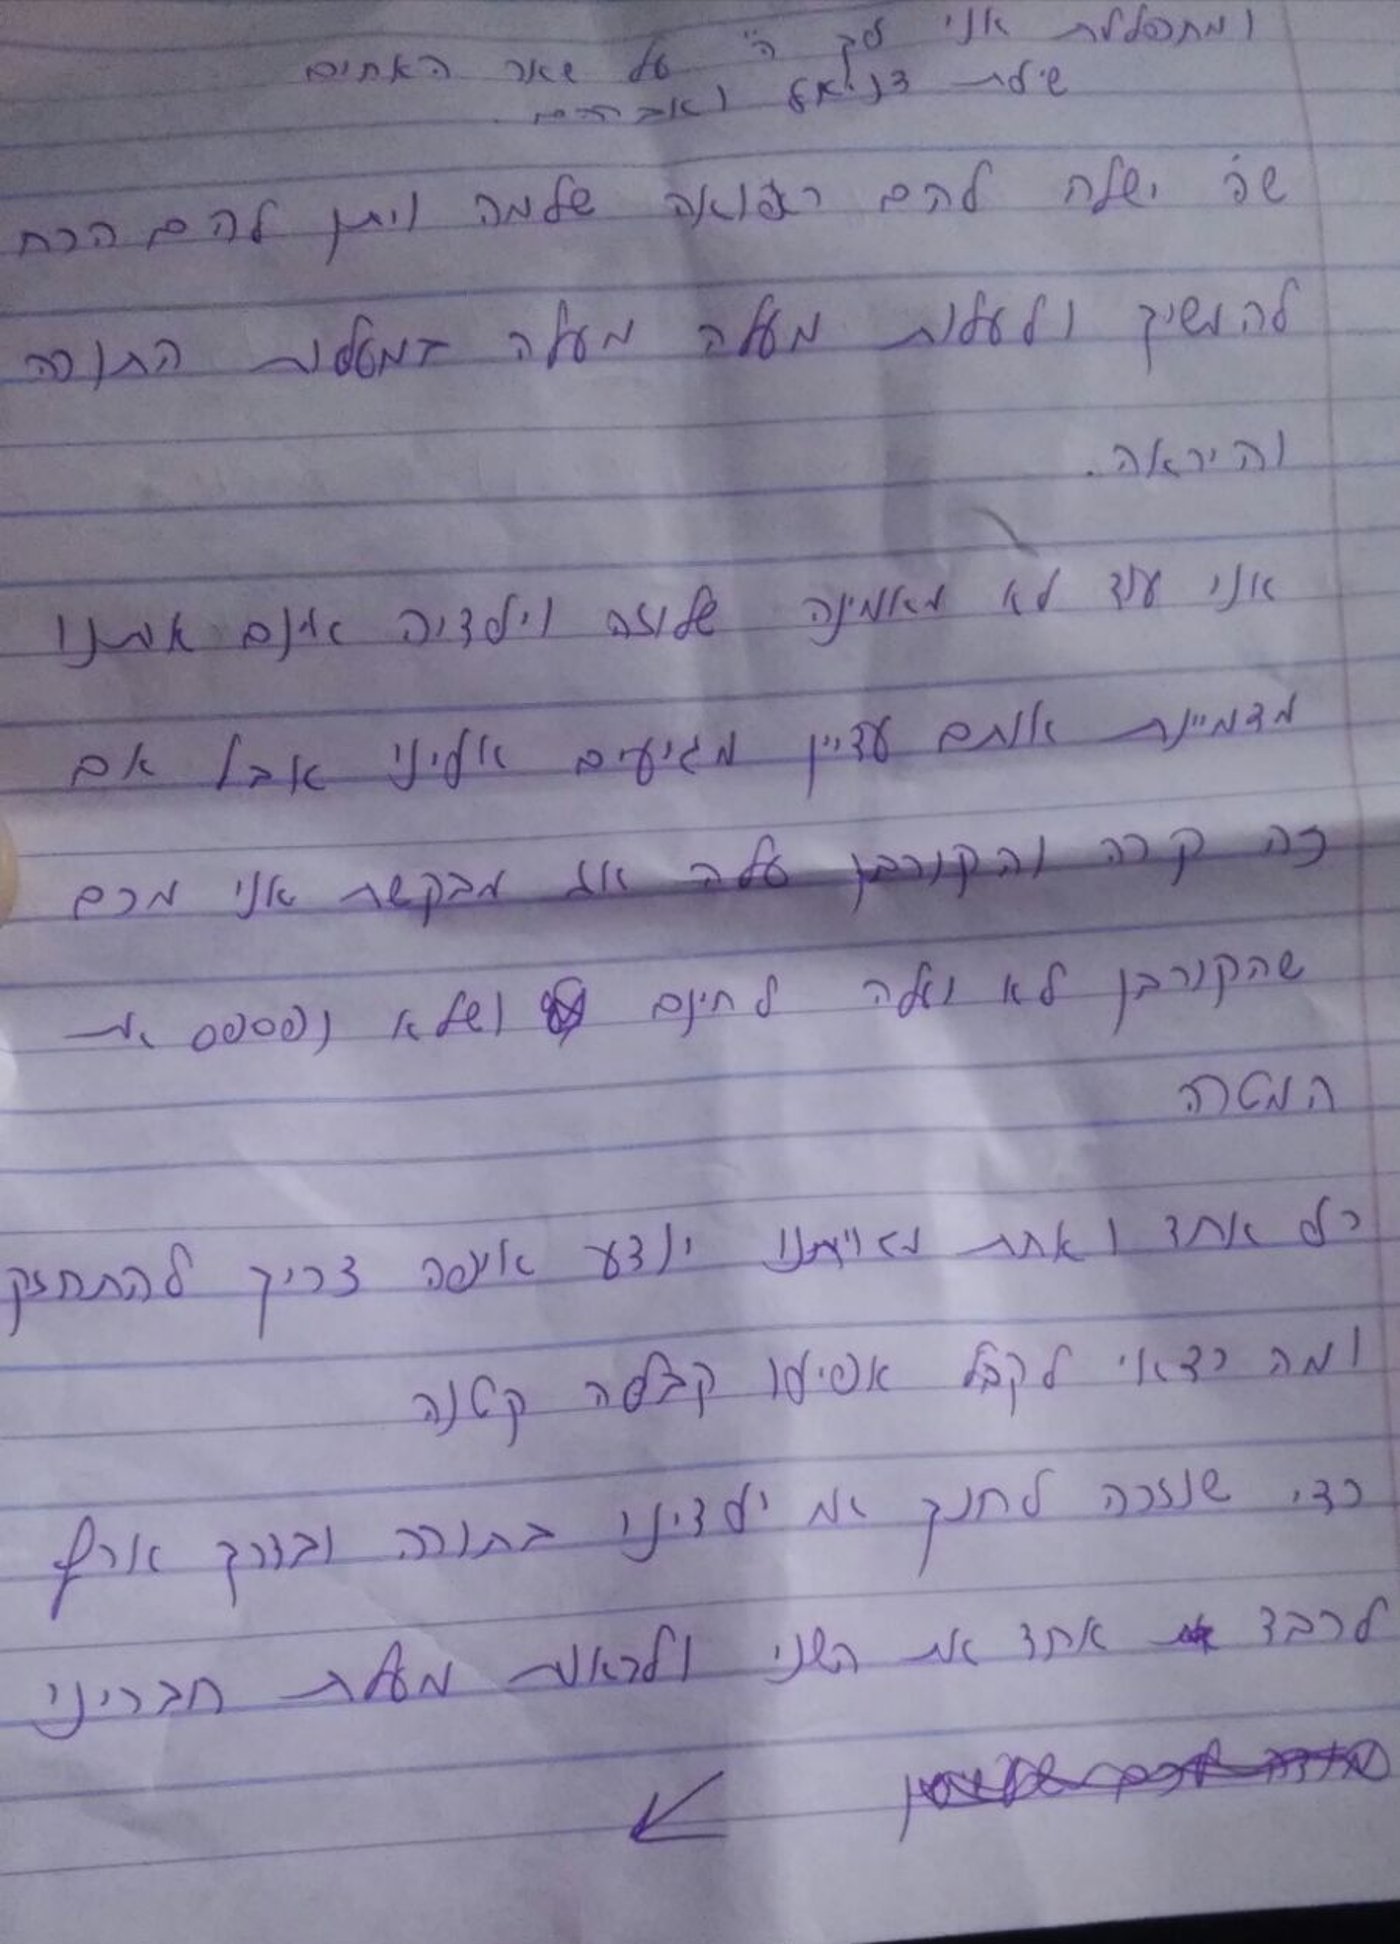 ומתפללת אני לפני ה' על שאר האחים
שילת דניאל ואברהם.
שה' ישלח להם רפואה שלמה ויתן להם הכח
להמשיך ולעלות מעלה מעלה במעלות התורה
והיראה.
אני עוד לא מאמינה שלוזה וילדיה אינם איתנו
מדמיינת אותם עדיין מגיעים אלינו אבל אם
זה קרה והקורבן עלה אז מבקשת אני מכם
שהקורבן לא יעלה לחינם ושלא נפספס את
המטרה
כל אחד ואחת מאיתנו יודע איפה צריך להתחזק
ומה כדאי לקבל אפילו קבלה קטנה
כדי שנזכה לחנך את ילדינו בתורה ובדרך ארץ
לכבד אחד את השני ולראות מעלת חברינו